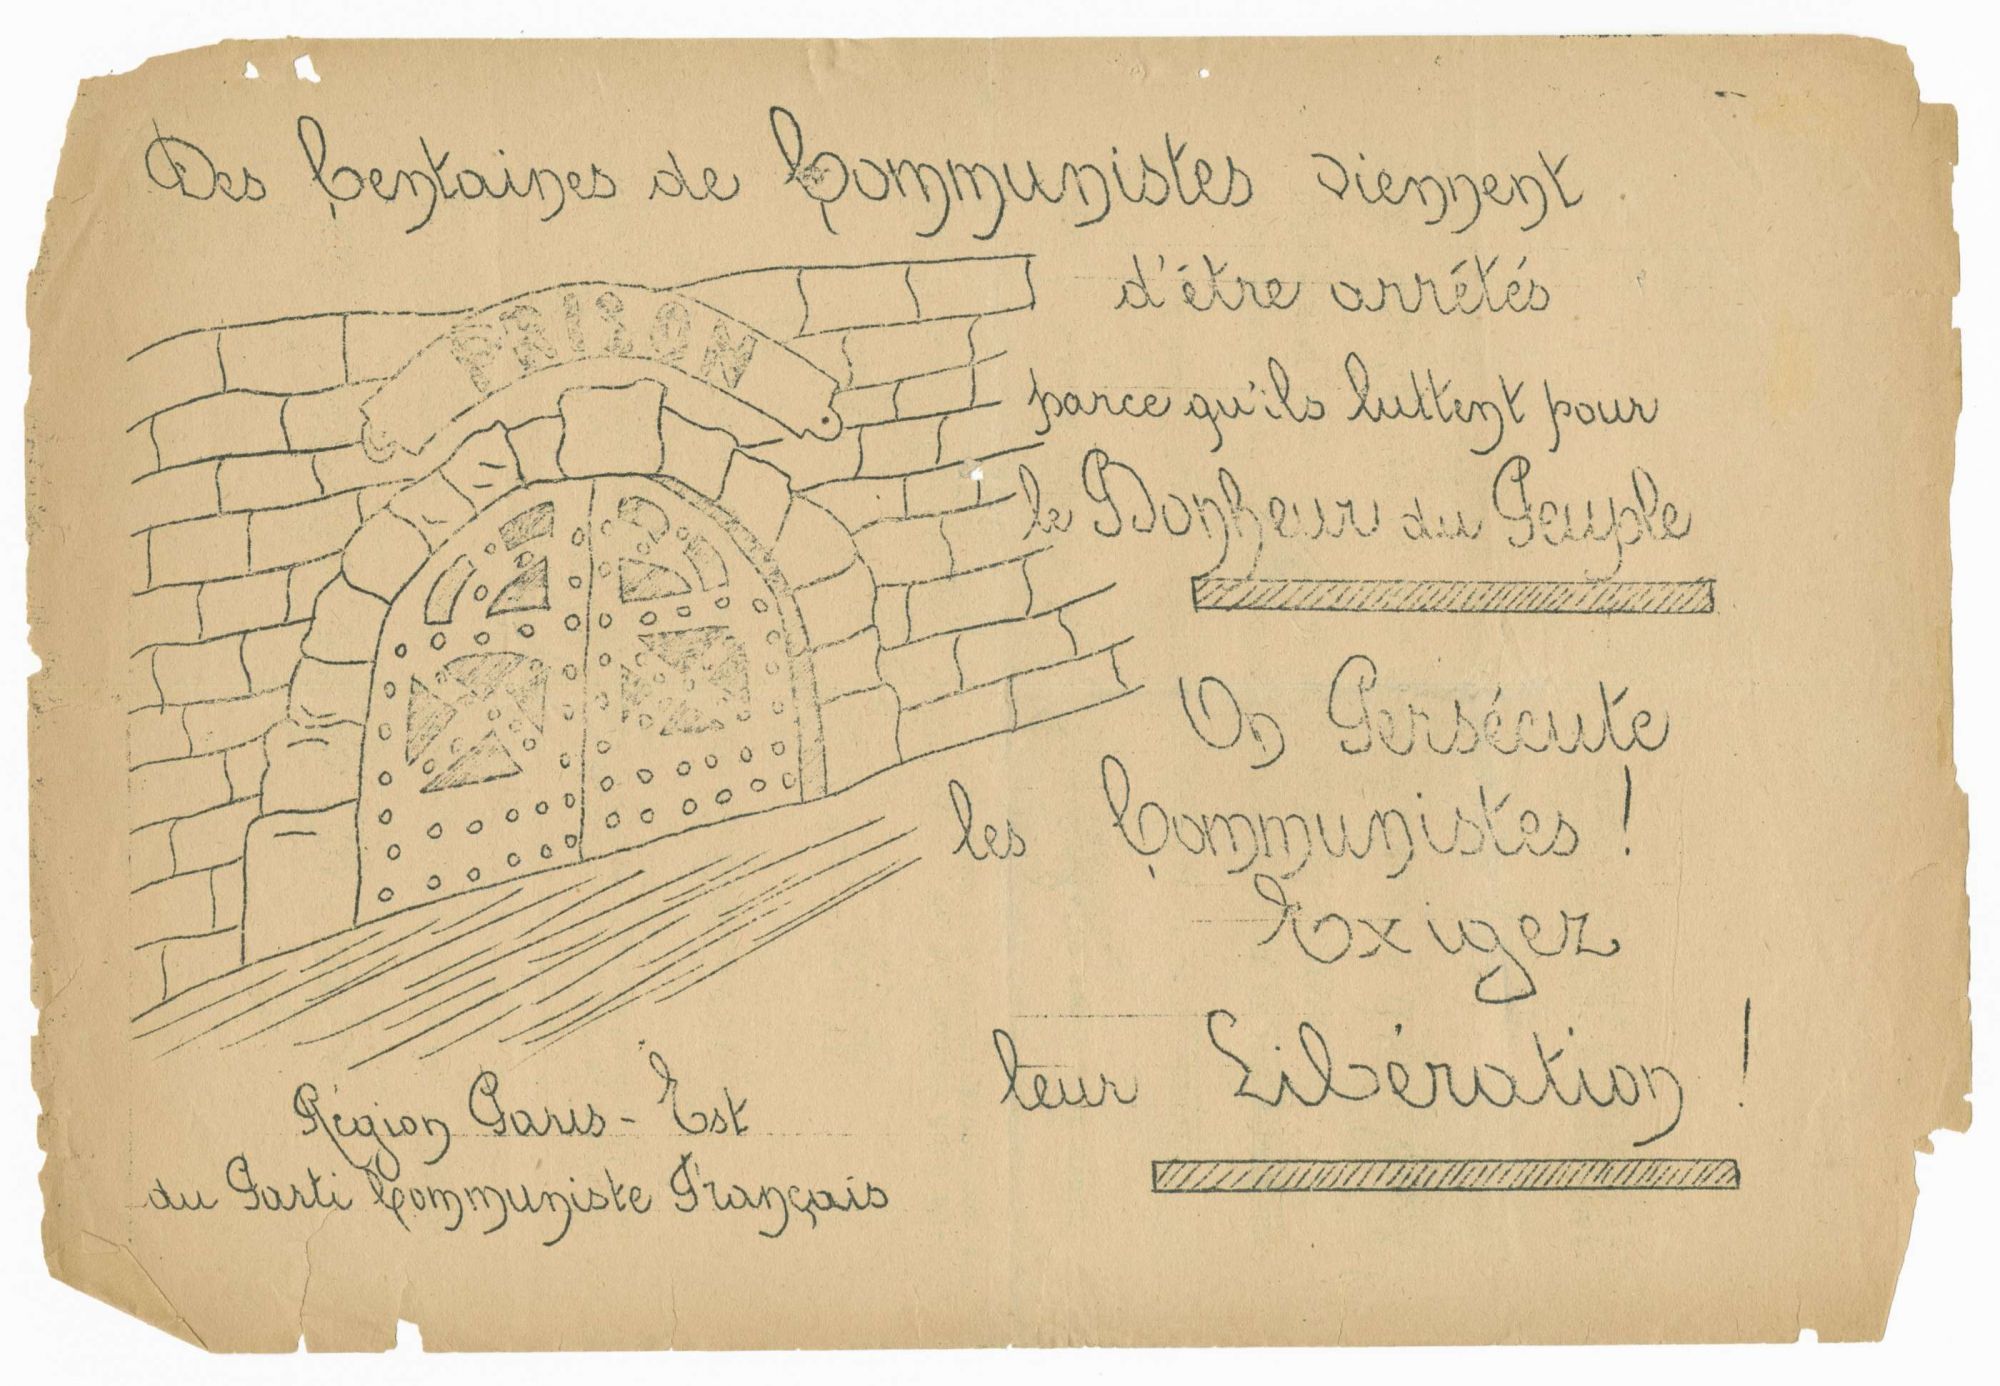 Des Centaines de Communistes viennent
d'être arrêtés
PRISON
parce qu'ils luttent pour
le Bonheur du Peuple
On Persécute
les Communistes !
Exigez
leur Libération !
Région Paris - Est
du Parti Communiste Français